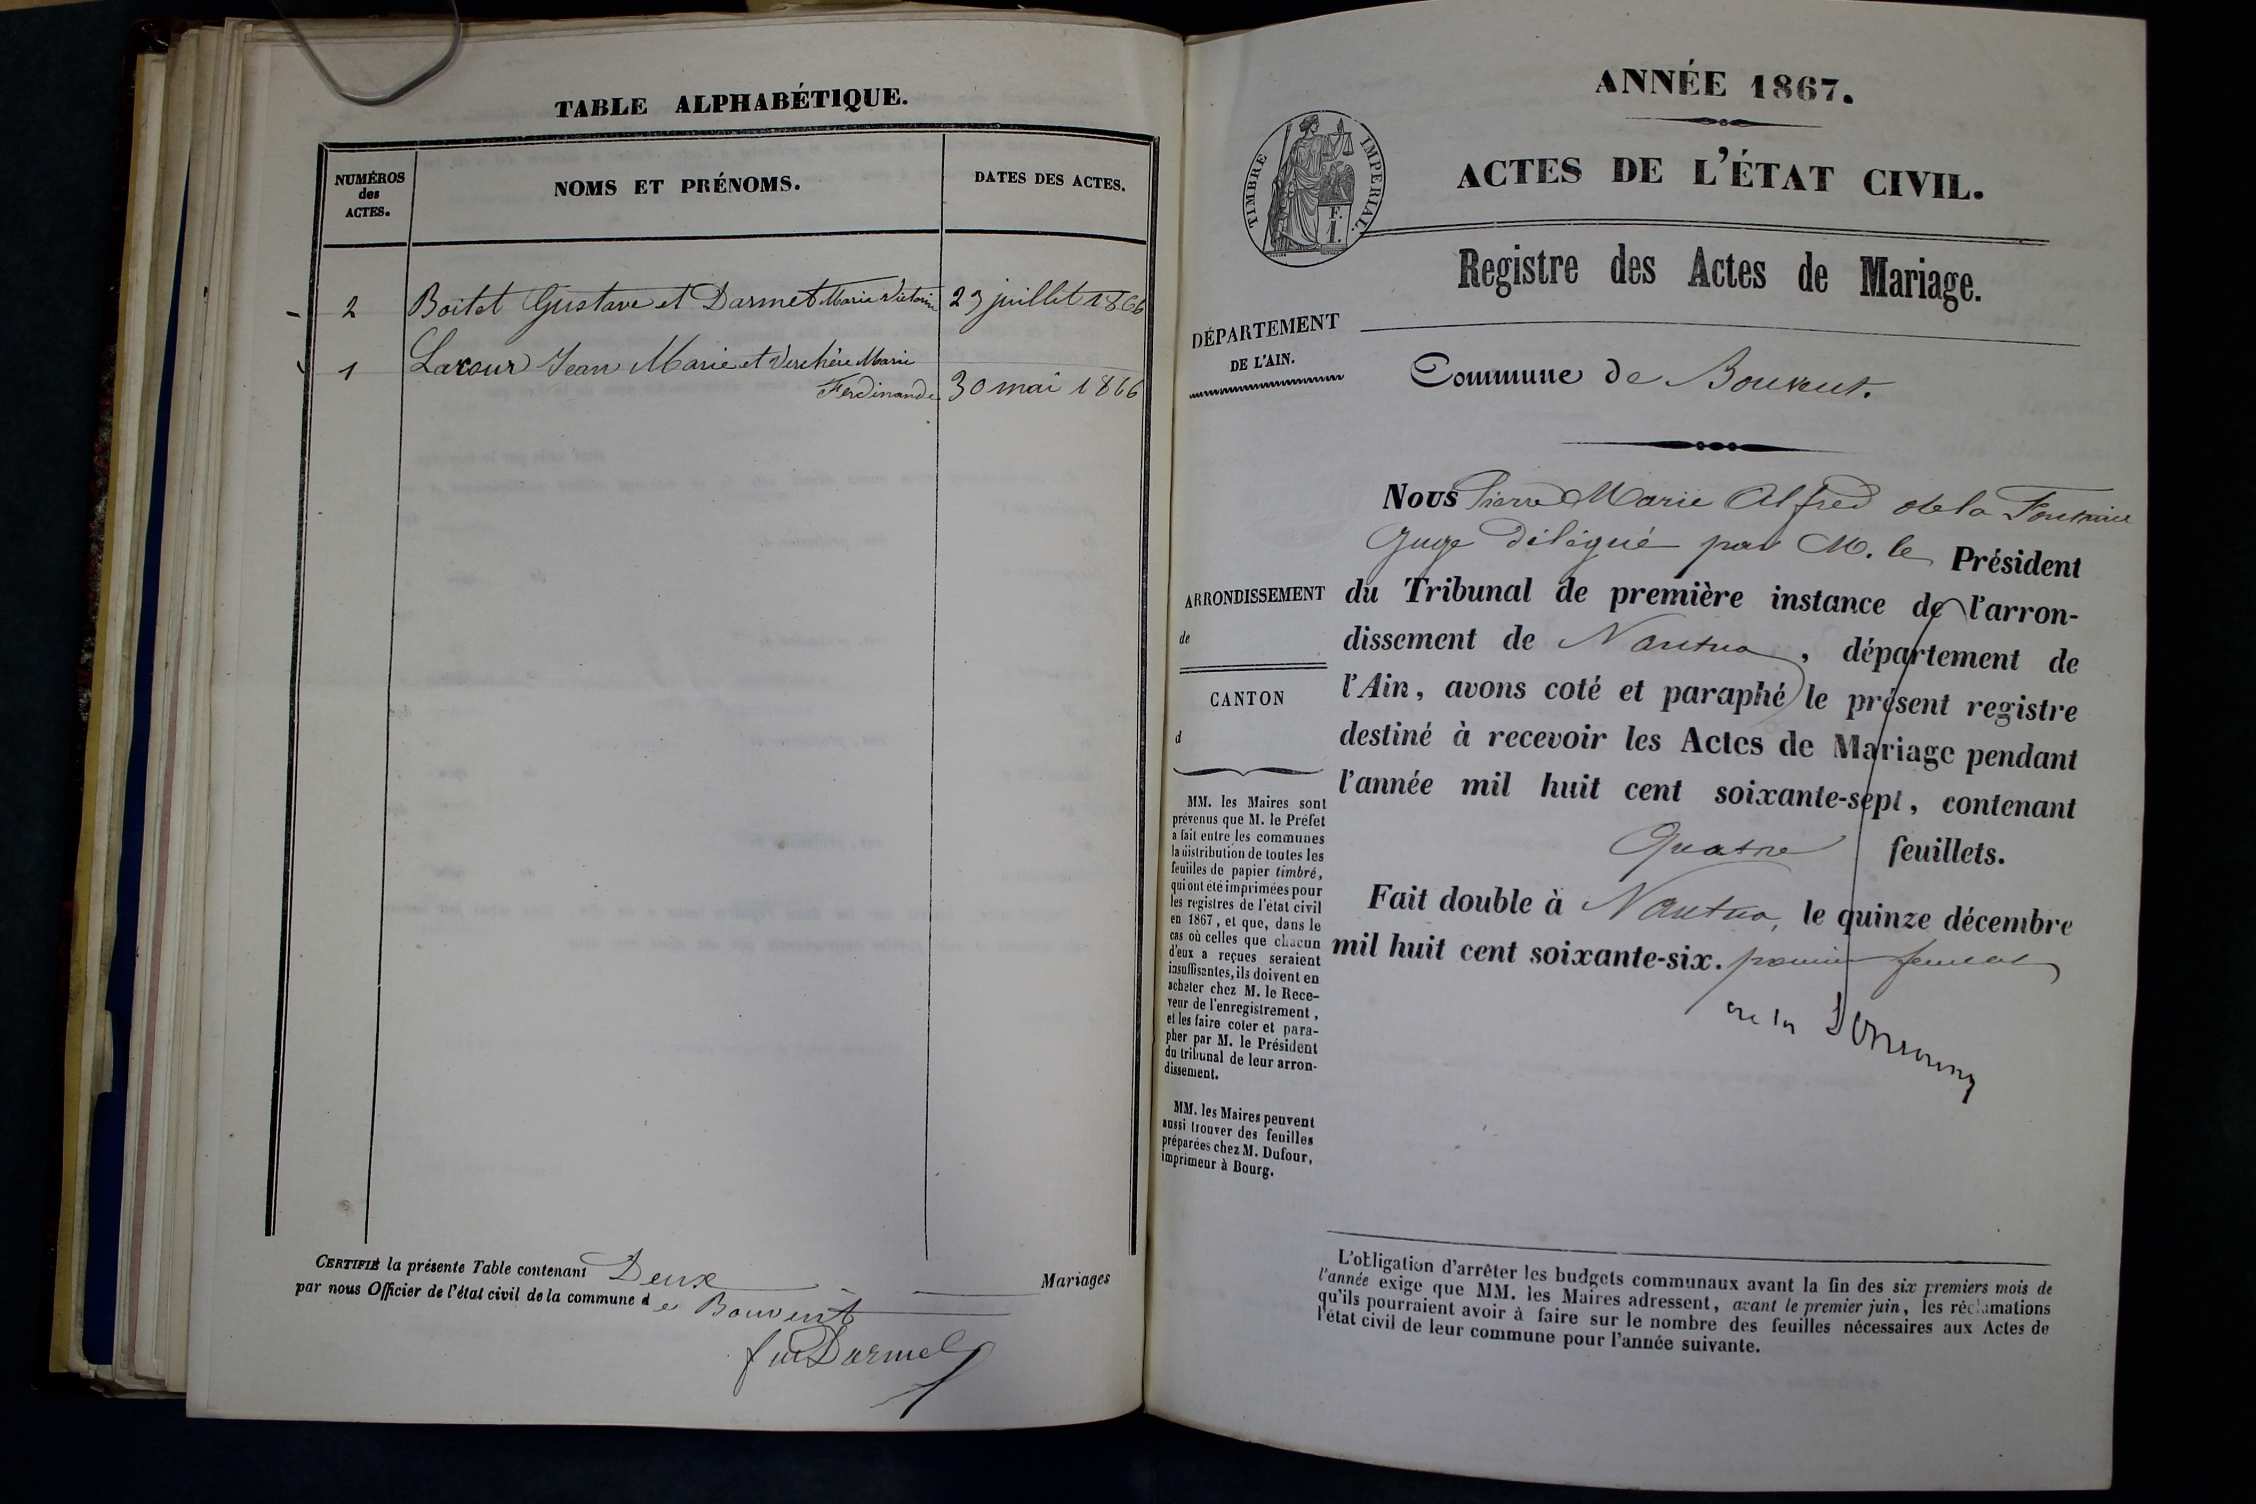 TABLE ALPHABÉTIQUE.
NUMÉROS
des
ACTES.
NOMS ET PRÉNOMS.
DATES DES ACTES.
2 Boitet Gustave et Darmet Marie Victorine 23 juillet 1866
1 Lacour Jean Marie et Verchère Marie
Ferdinande 30 mai 1866
CERTIFIÉ la présente Table contenant Deux Mariages
par nous Officier de l'état civil de la commune de Bouvent
Darmet
ANNÉE 1867.
TIMBRE IMPERIAL.
F.
1.
ACTES DE L'ÉTAT CIVIL.
Registre des Actes de Mariage.
DÉPARTEMENT
DE L'AIN.
Commune de Bouvent.
Nous Pierre Marie Alfred de la
Juge délégué par M. le Président
du Tribunal de première instance de l'arron-
dissement de Nantua, département de
l'Ain, avons coté et paraphé le présent registre
destiné à recevoir les Actes de Mariage pendant
l'année mil huit cent soixante-sept, contenant
Quatre feuillets.
Fait double à Nantua, le quinze décembre
mil huit cent soixante-six. premier feuillet
ARRONDISSEMENT
de
CANTON
d
MM. les Maires sont
prévenus que M. le Préfet
a fait entre les communes
la distribution de toutes les
feuilles de papier timbré,
qui ont été imprimées pour
les registres de l'état civil
en 1867, et que, dans le
cas où celles que chacun
d'eux a reçues seraient
insuffisantes, ils doivent en
acheter chez M. le Rece-
veur de l'enregistrement,
et les faire coter et para-
pher par M. le Président
du tribunal de leur arron-
dissement.
MM. les Maires peuvent
aussi trouver des feuilles
préparées chez M. Dufour,
imprimeur à Bourg.
L'obligation d'arrêter les budgets communaux avant la fin des six premiers mois de
l'année exige que MM. les Maires adressent, avant le premier juin, les réclamations
qu'ils pourraient avoir à faire sur le nombre des feuilles nécessaires aux Actes de
l'état civil de leur commune pour l'année suivante.